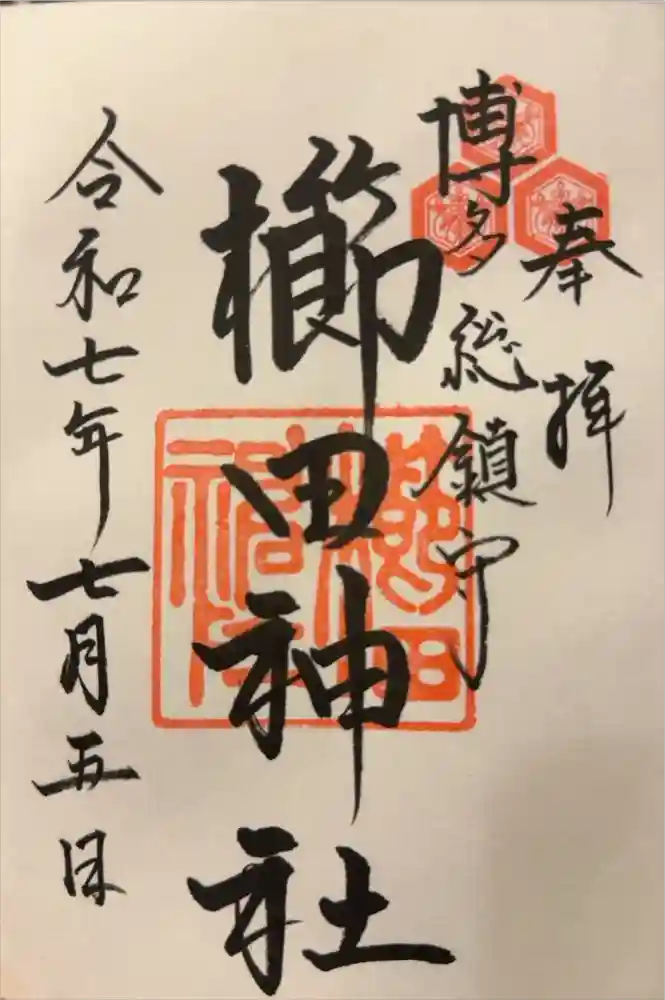 奉拝
博多総鎮守
櫛田神社
令和七年七月五日